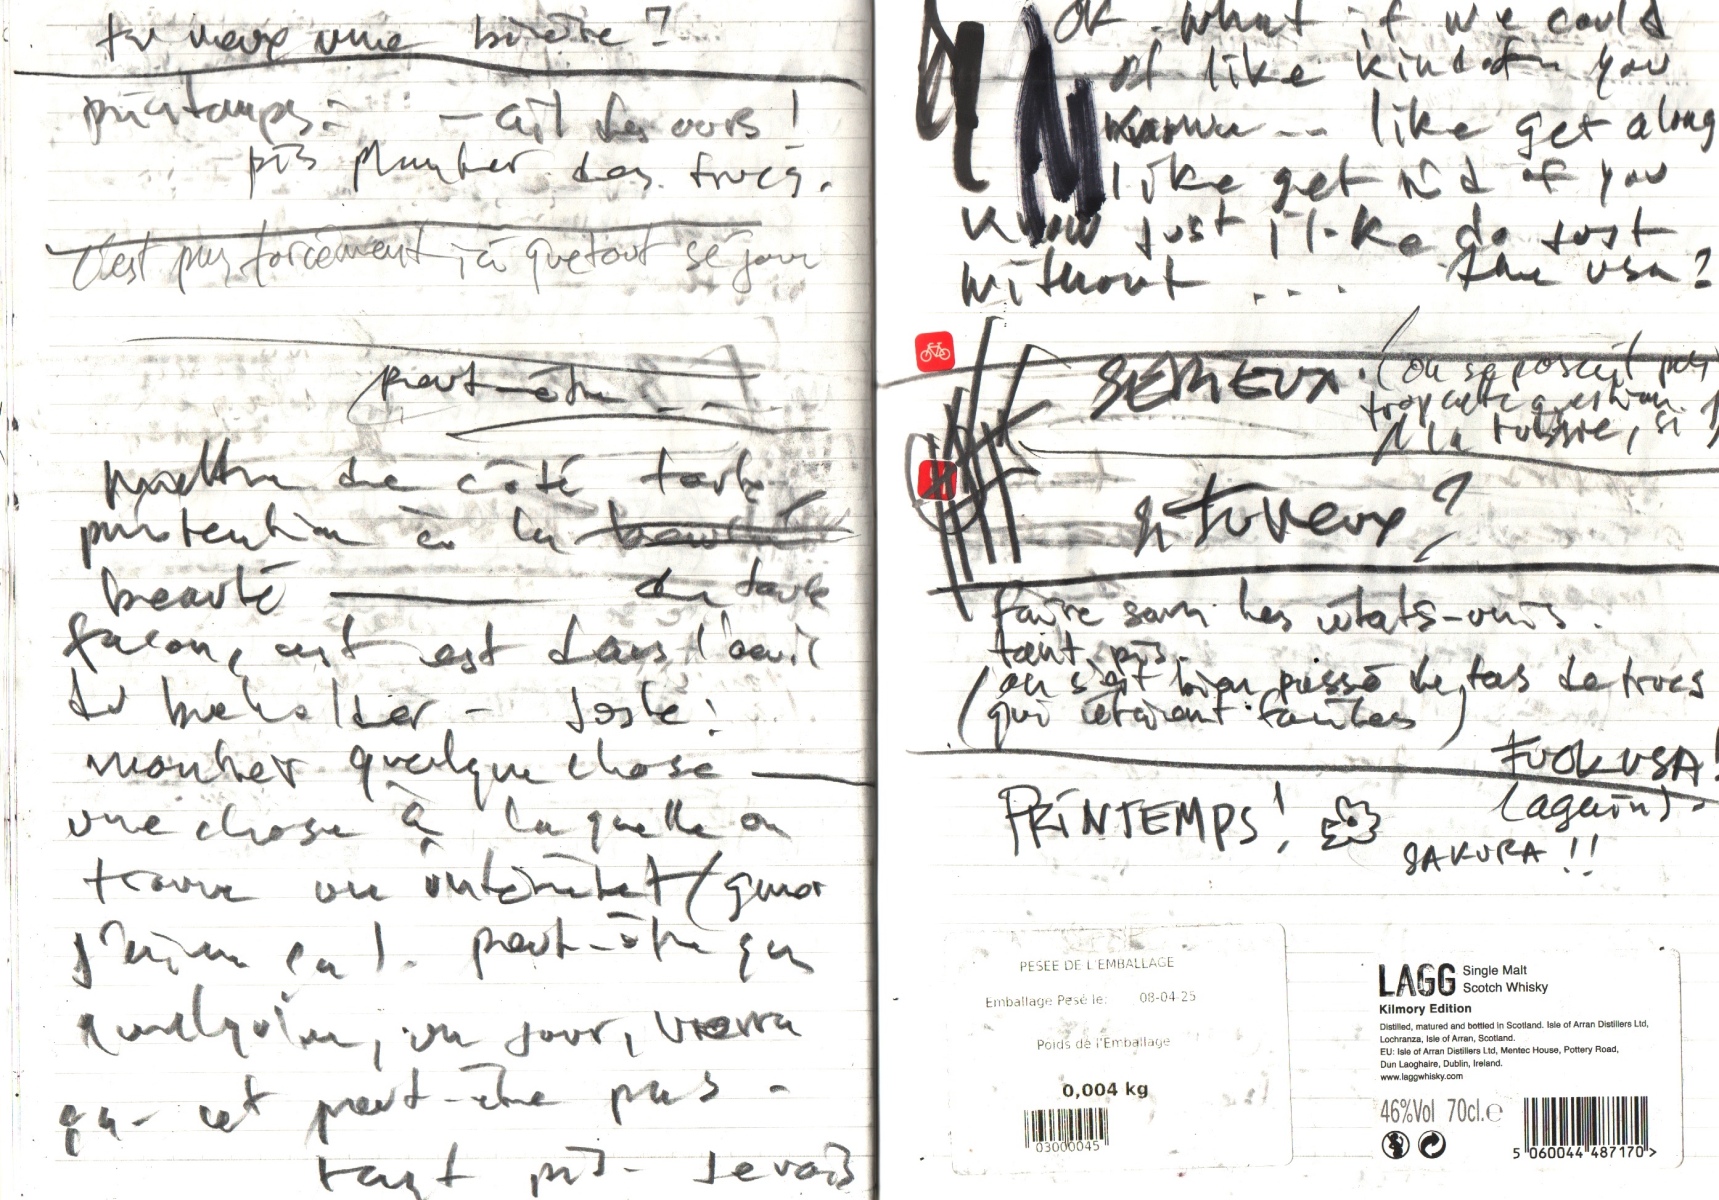 tu veux une bière?
printemps: - ail des ours!
pis planter des trucs.
c'est pas forcément ici que tout se joue
peut-être
mettre de côté toute
prétention à la
beauté de toute
façon, est dans l'oeil
du beholder -
montrer quelque chose
une chose à laquelle on
trouve un intérêt (quoi
j'aime ça). peut-être que
quelqu'un, un jour, verra
ça - et peut-être pas -
tant pis - je vais
OK. what if we could
of like kind of you
know -- like get along
like get rid of you
know just like do just
without ... the USA?
SERIEUX. (on se posait pas
trop cette question
à la russie, si)
tu veux?
faire sans les états-unis.
tant pis.
(on s'est bien passé de tas de trucs
qui étaient fautes)
FUCK USA!
(again)
PRINTEMPS!
SAKURA!!
PESEE DE L'EMBALLAGE
Emballage Pesé le: 08-04-25
Poids de l'Emballage
0,004 kg
03000045
LAGG Single Malt
Scotch Whisky
Kilmory Edition
Distilled, matured and bottled in Scotland. Isle of Arran Distillers Ltd,
Lochranza, Isle of Arran, Scotland.
EU: Isle of Arran Distillers Ltd, Mentec House, Pottery Road,
Dun Laoghaire, Dublin, Ireland.
www.laggwhisky.com
46%Vol 70cl.e
5 060044 487170 >